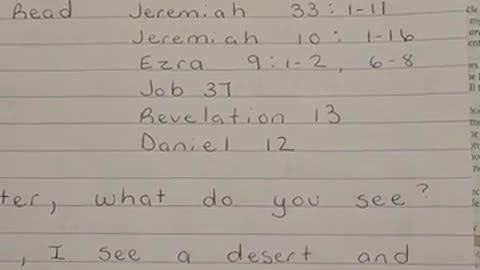 Read Jeremiah 33:1-11
Jeremiah 10: 1-16
Ezra 9:1-2, 6-8
Job 37
Revelation 13
Daniel 12
what do you see?
, I see a desert and